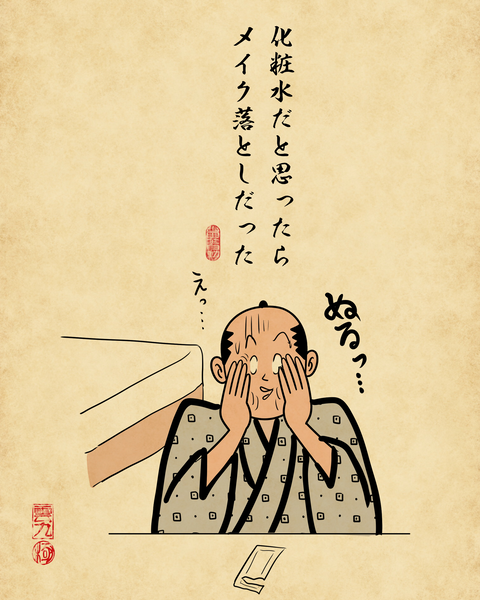 化粧水だと思ったら
メイク落としだった
えっ…
ぬるっ…